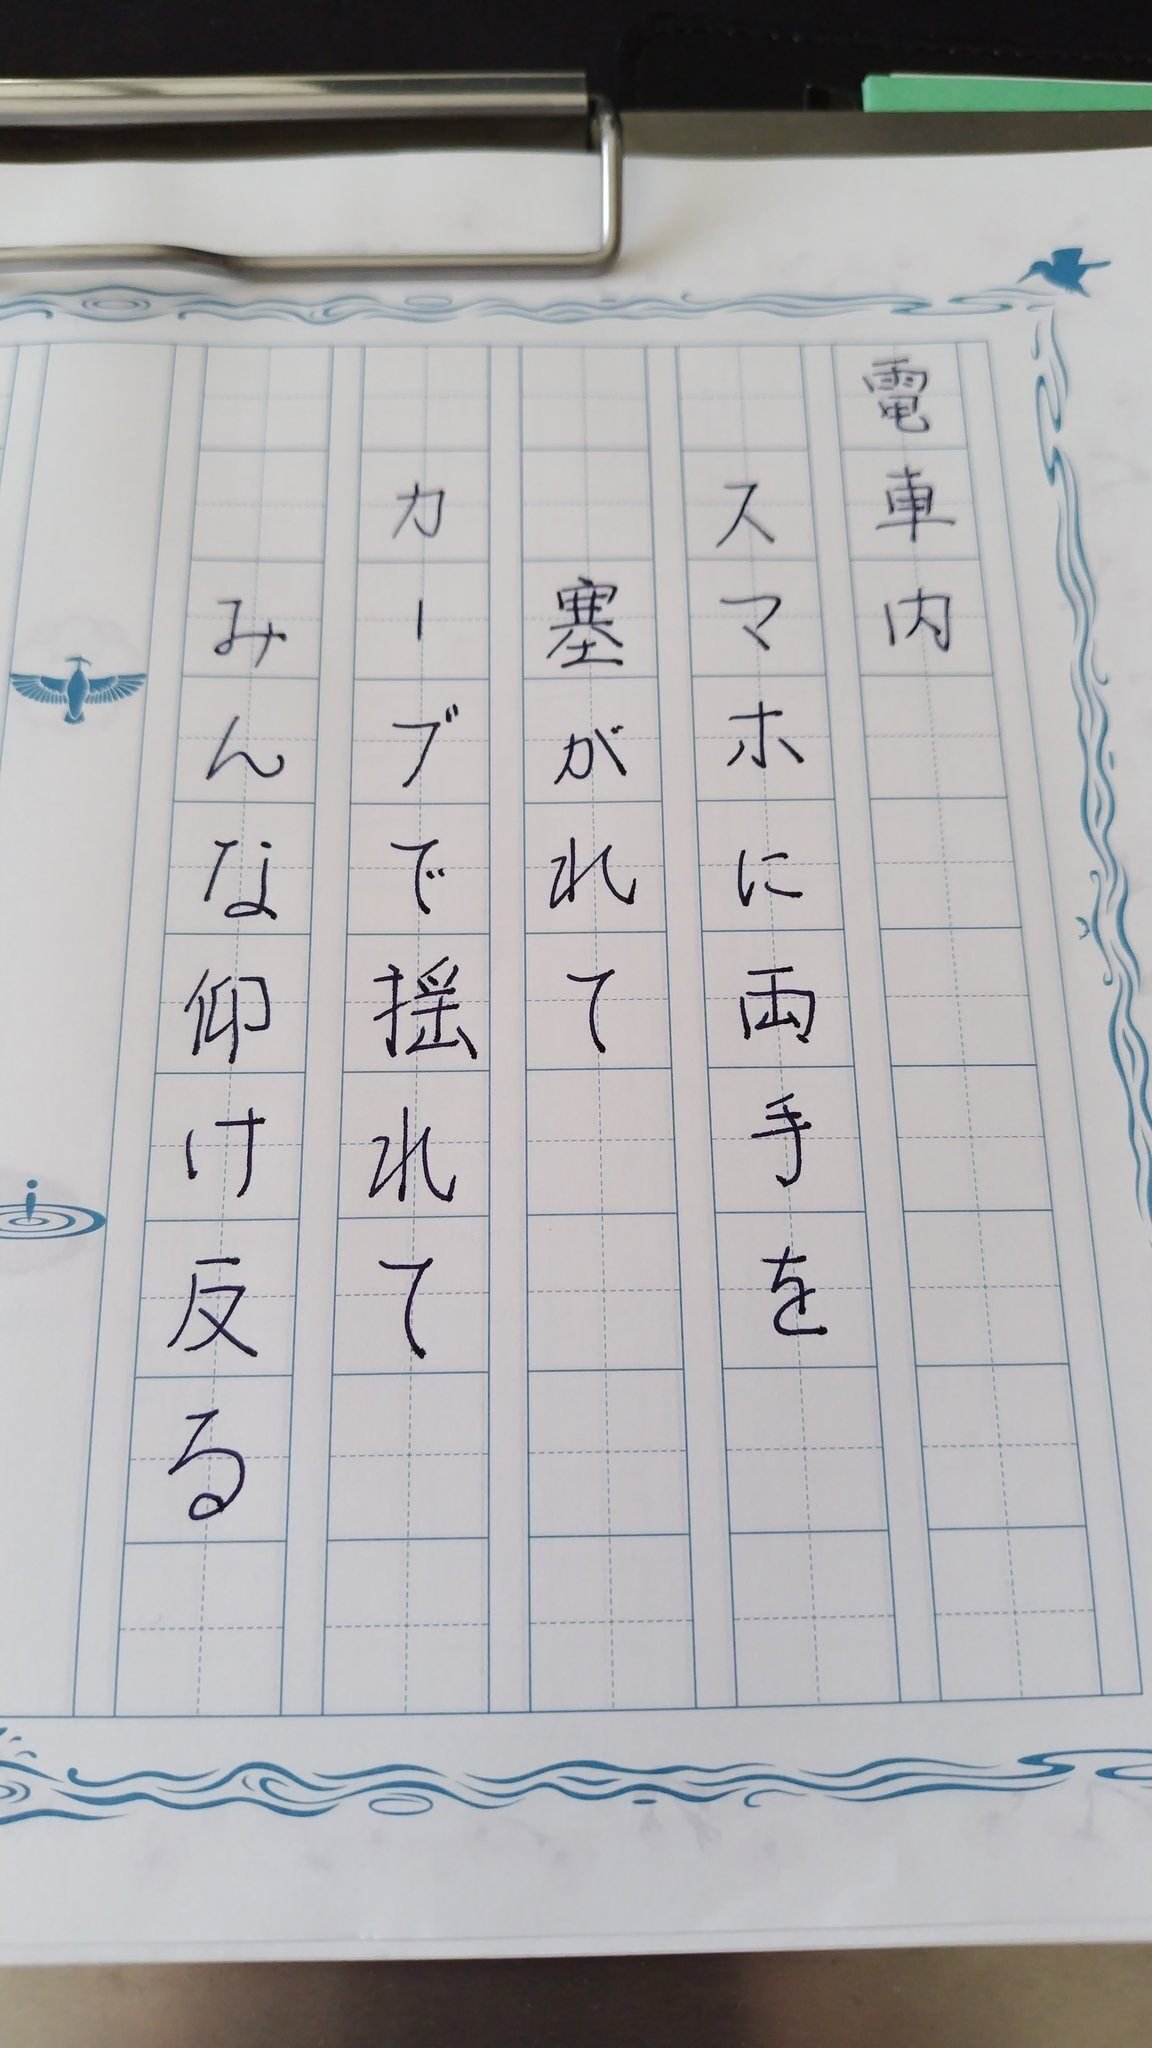 電車内
スマホに両手を
塞がれて
カーブで揺れて
みんな仰け反る